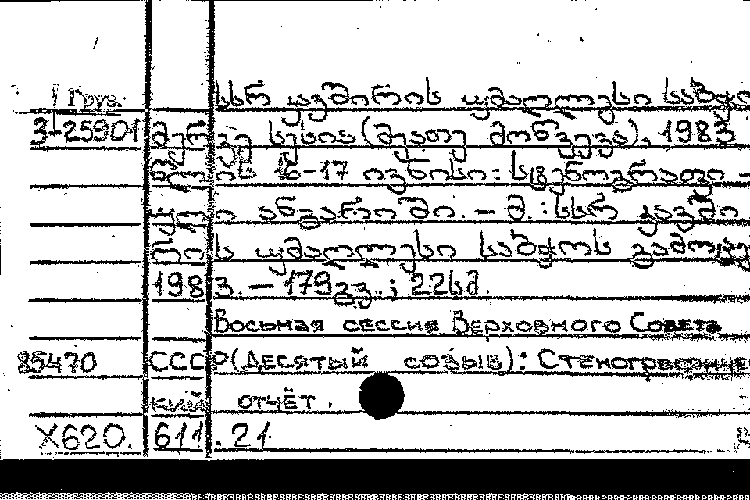 Груз. სსრ კავშირის უმაღლესი საბჭო
3-25901 მერვე სესია (მეათე მოწვევა), 1983
წლის 16-17 ივნისი: სტენოგრაფი -
ული ანგარიში. - მ.: სსრ კავში
რის უმაღლესი საბჭოს გამოცე
1983. - 179გვ.; 22სმ.
Восьмая сессия Верховного Совета
85470 СССР (Десятый созыв): Стенографичес
кий отчёт.
X620. 611.21